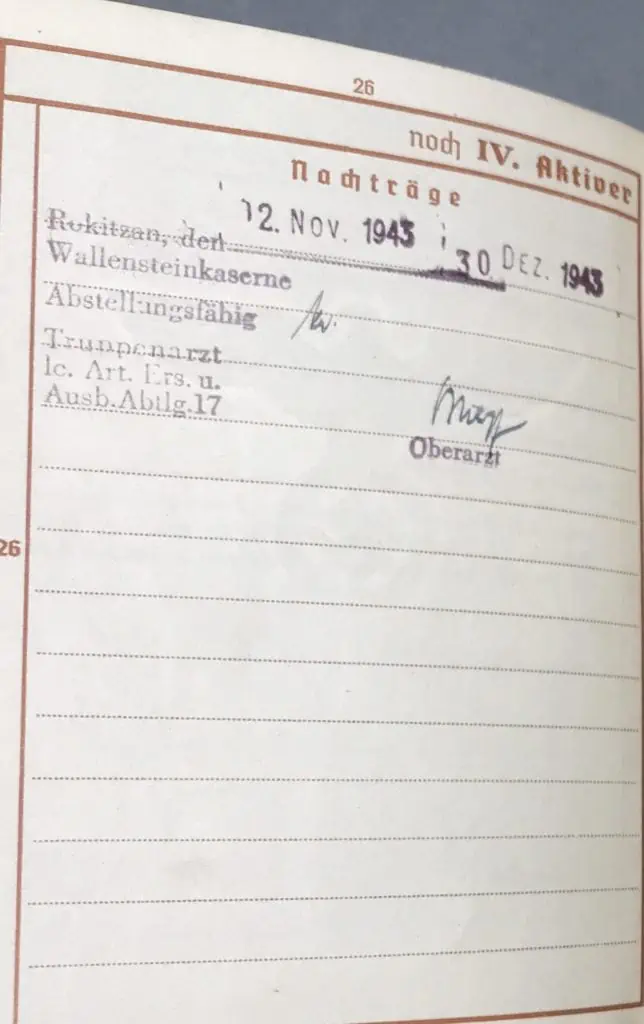 26
noch IV. Aktiver
Nachträge
Rokitzan, den 12. Nov. 1943 30 Dez. 1943
Wallensteinkaserne
Abstellungsfähig
Truppenarzt
lc. Art. Ers. u.
Ausb.Abtlg.17
Oberarzt
26